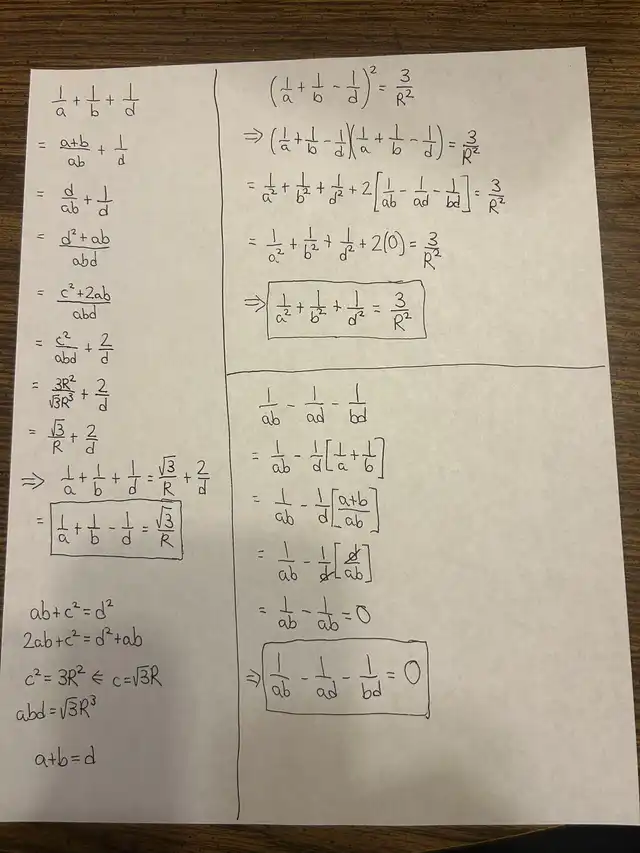 1/a + 1/b + 1/d
= (a+b)/ab + 1/d
= d/ab + 1/d
= (d² + ab)/abd
= (c² + 2ab)/abd
= c²/abd + 2/d
= 3R²/√3R³ + 2/d
= √3/R + 2/d
⇒ 1/a + 1/b + 1/d = √3/R + 2/d
= 1/a + 1/b - 1/d = √3/R
ab + c² = d²
2ab + c² = d² + ab
c² = 3R² ⇐ c = √3R
abd = √3R³
a + b = d
(1/a + 1/b - 1/d)² = 3/R²
⇒ (1/a + 1/b - 1/d)(1/a + 1/b - 1/d) = 3/R²
= 1/a² + 1/b² + 1/d² + 2[1/ab - 1/ad - 1/bd] = 3/R²
= 1/a² + 1/b² + 1/d² + 2(0) = 3/R²
⇒ 1/a² + 1/b² + 1/d² = 3/R²
1/ab - 1/ad - 1/bd
= 1/ab - 1/d[1/a + 1/b]
= 1/ab - 1/d[(a+b)/ab]
= 1/ab - 1/d[d/ab]
= 1/ab - 1/ab = 0
⇒ 1/ab - 1/ad - 1/bd = 0